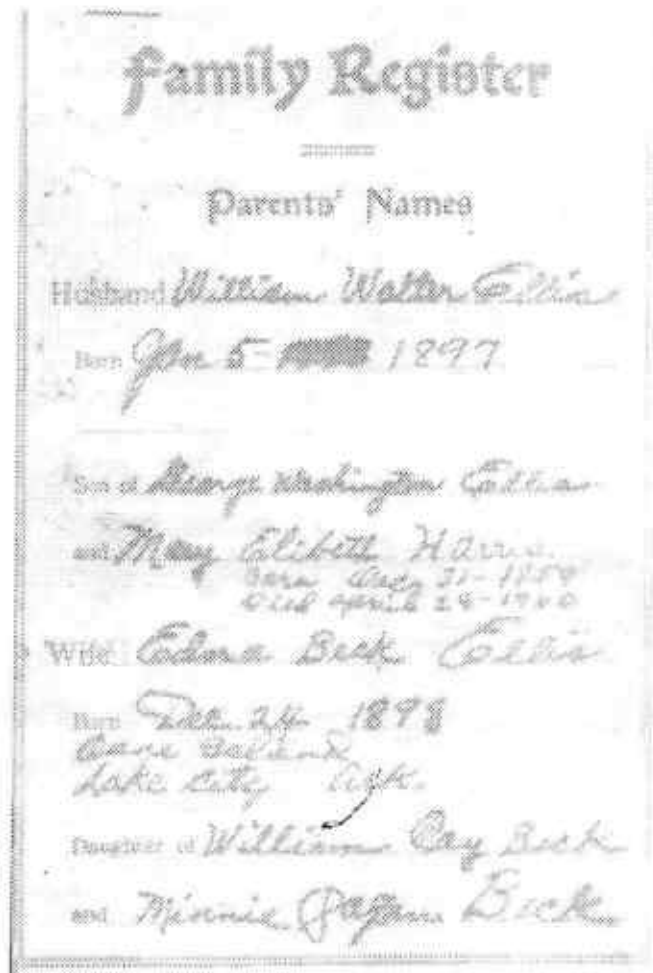 Family Register
Parents' Names
Husband William Walter Ellis
Born Jan 5- 1897
Son of George Washington Ellis
and Mary Elibeth Harris
Born Dec 31-
Died April 1900
Wife Edna Beck Ellis
Born Dec. 24 1898
Lake City Ark.
Daughter of William Beck
and Minnie Beck